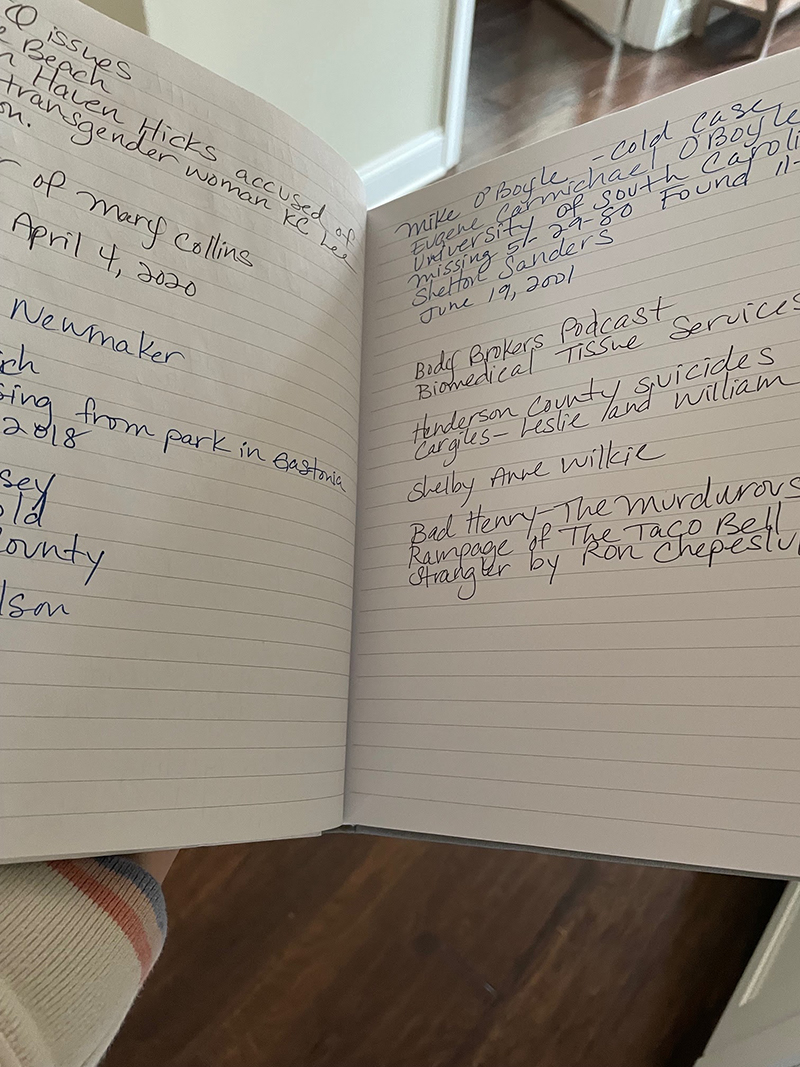 Q issues
Beach
Haven Hicks accused of
transgender woman KC Lee
on.
of Mary Collins
April 4, 2020
Newmaker
ich
sing from park in Gastonia
2018
sey
old
County
lson
Mike O'Boyle - Cold Case
Eugene Carmichael O'Boyle
University of South Caroli
missing 5-29-80 Found 11-
Shelton Sanders
June 19, 2001
Body Brokers Podcast
Biomedical Tissue Services
Henderson County suicides
Cargiles - Leslie and William
Shelby Anne Wilkie
Bad Henry - The Murdurous
Rampage of The Taco Bell
Strangler by Ron Chepesiu